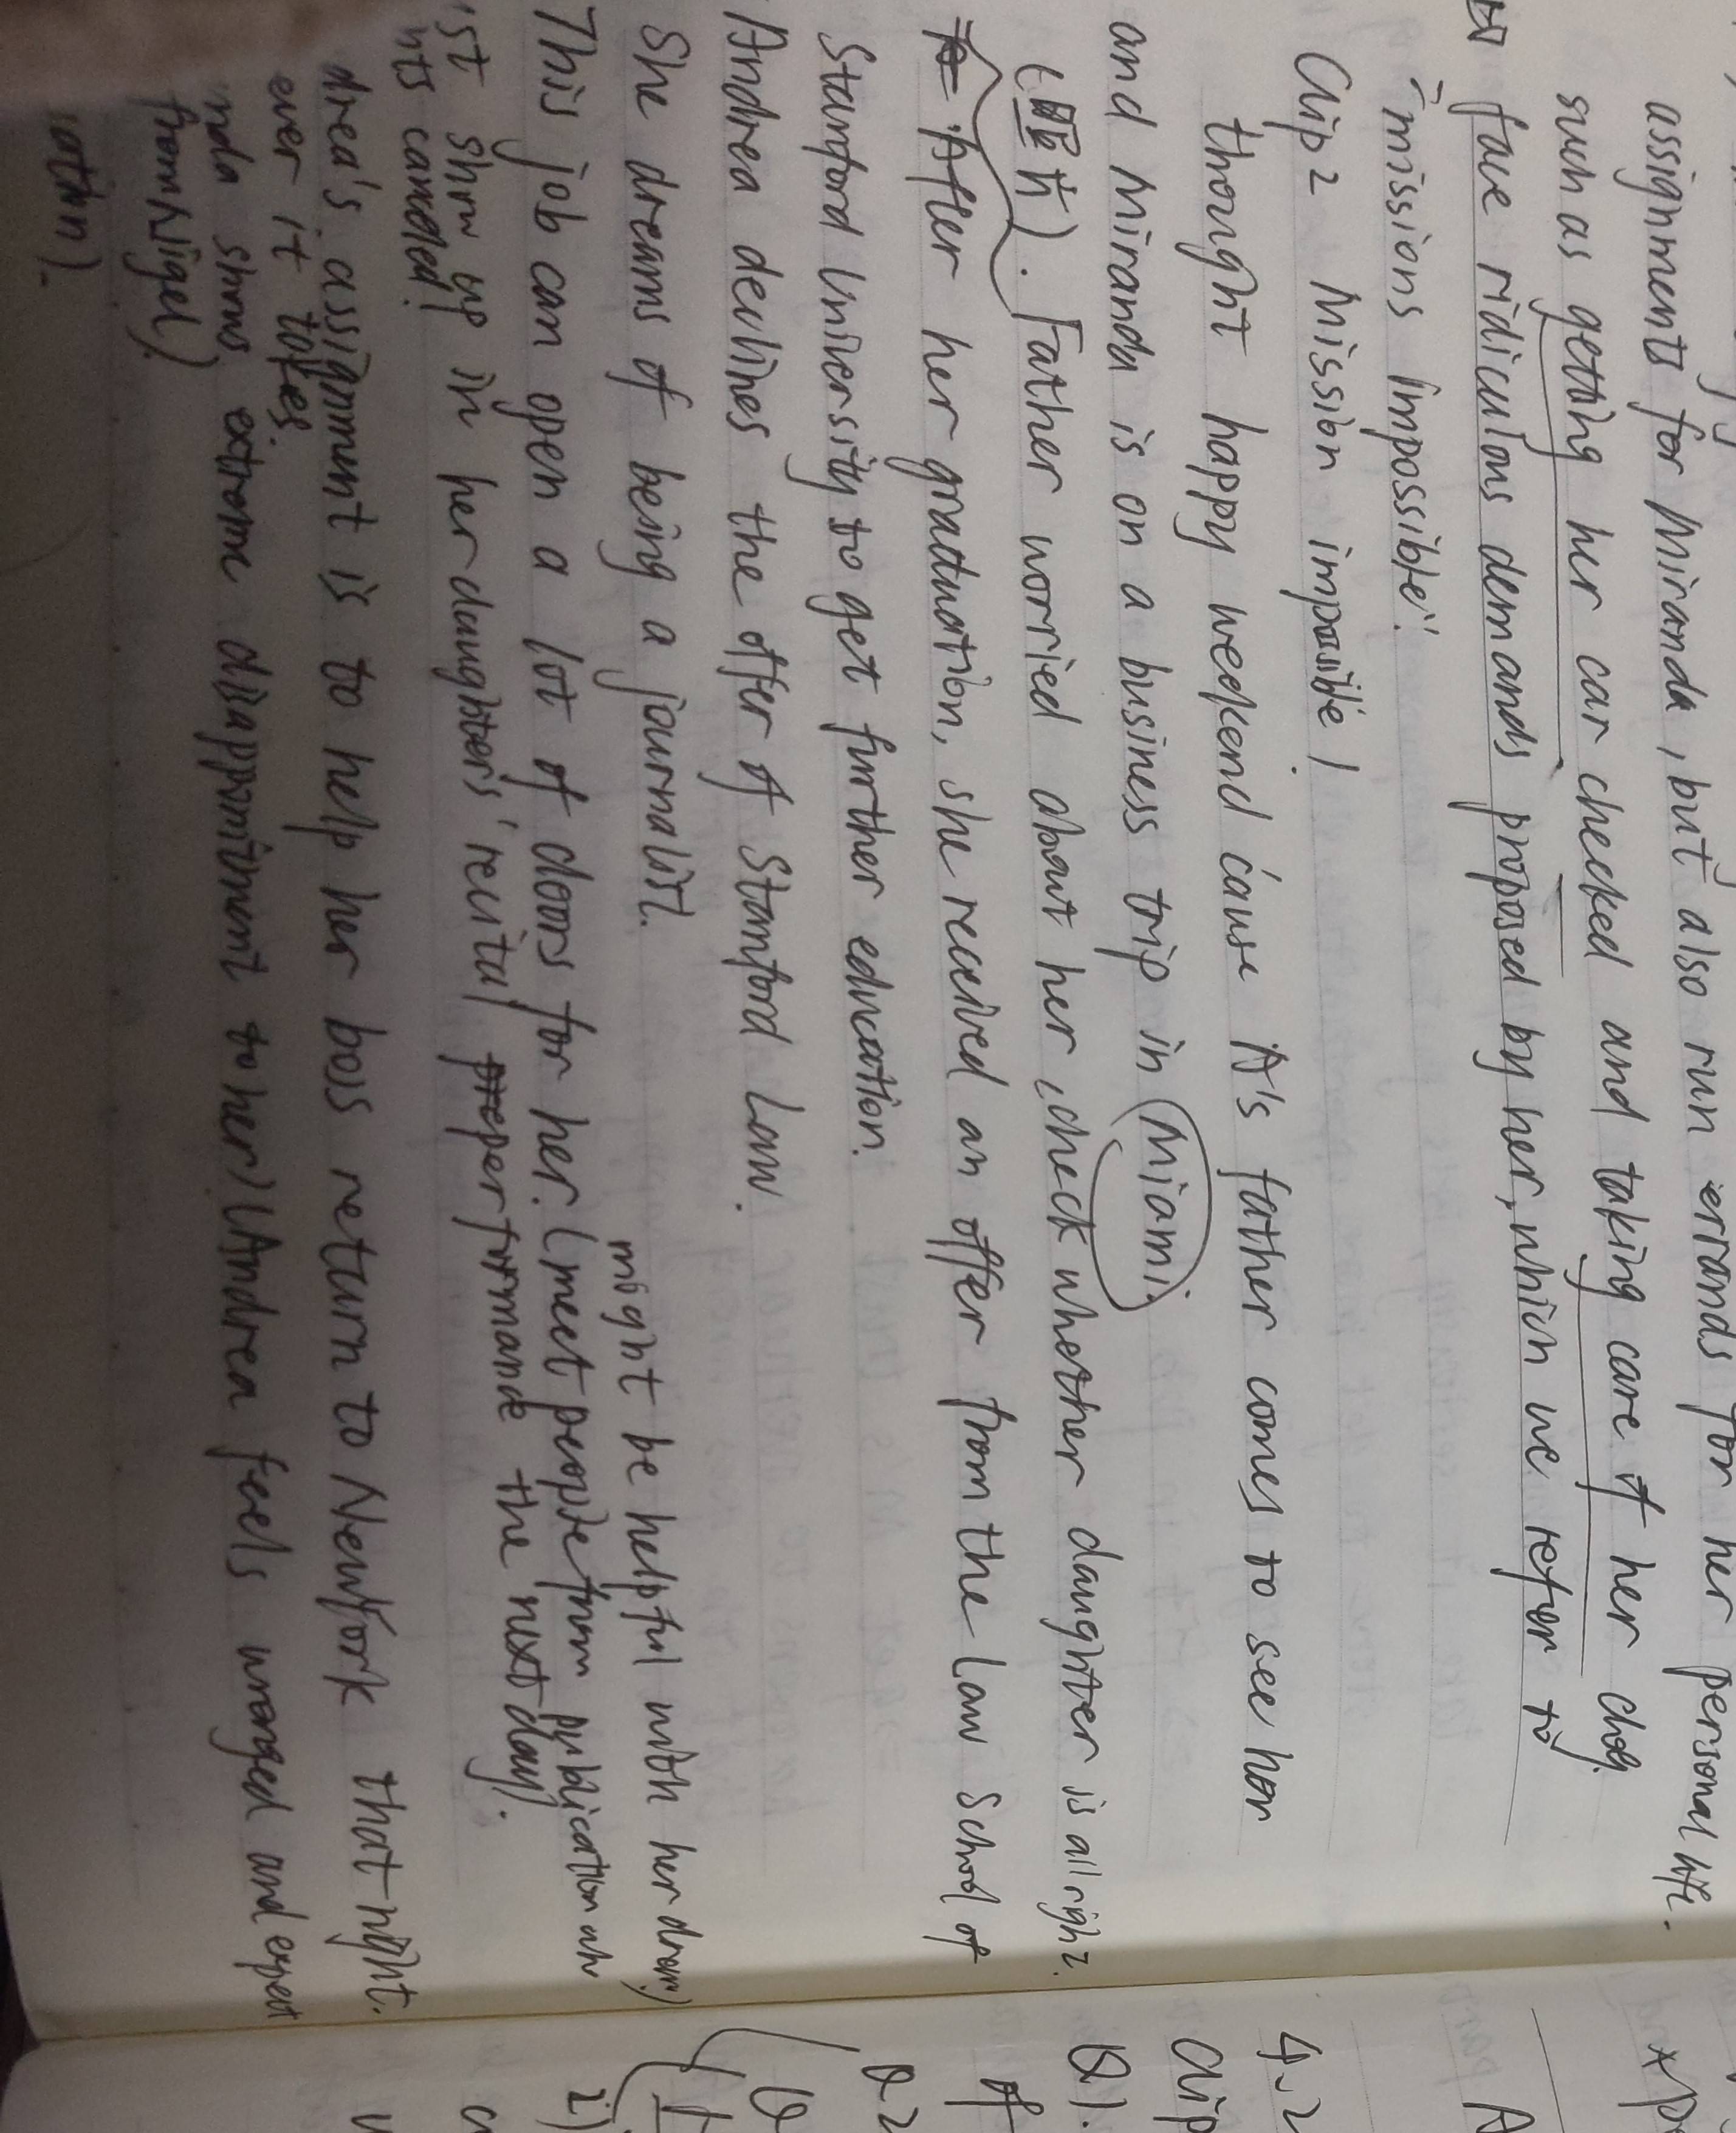 assignments for Miranda, but also run errands for her personal life.
such as getting her car checked and taking care of her dog.
face ridiculous demands proposed by her, which we refer to
"missions impossible".
Clip 2 Mission impossible!
thought happy weekend cause A's father comes to see her
and Miranda is on a business trip in Miami.
Father worried about her, check whether daughter is all right.
After her graduation, she received an offer from the Law School of
Stanford University to get further education.
Andrea declines the offer of Stanford Law.
She dreams of being a journalist.
might be helpful with her dream)
This job can open a lot of doors for her. (meet people from publication
show up in her daughters' recital performance the next day.
nts canceled!
drea's assignment is to help her boss return to New York that night.
ever it takes.
nda shows extreme disappointment to her) (Andrea feels wronged and expect
from Nigel)
4.2
Clip
Q1.
of
Q2
2)